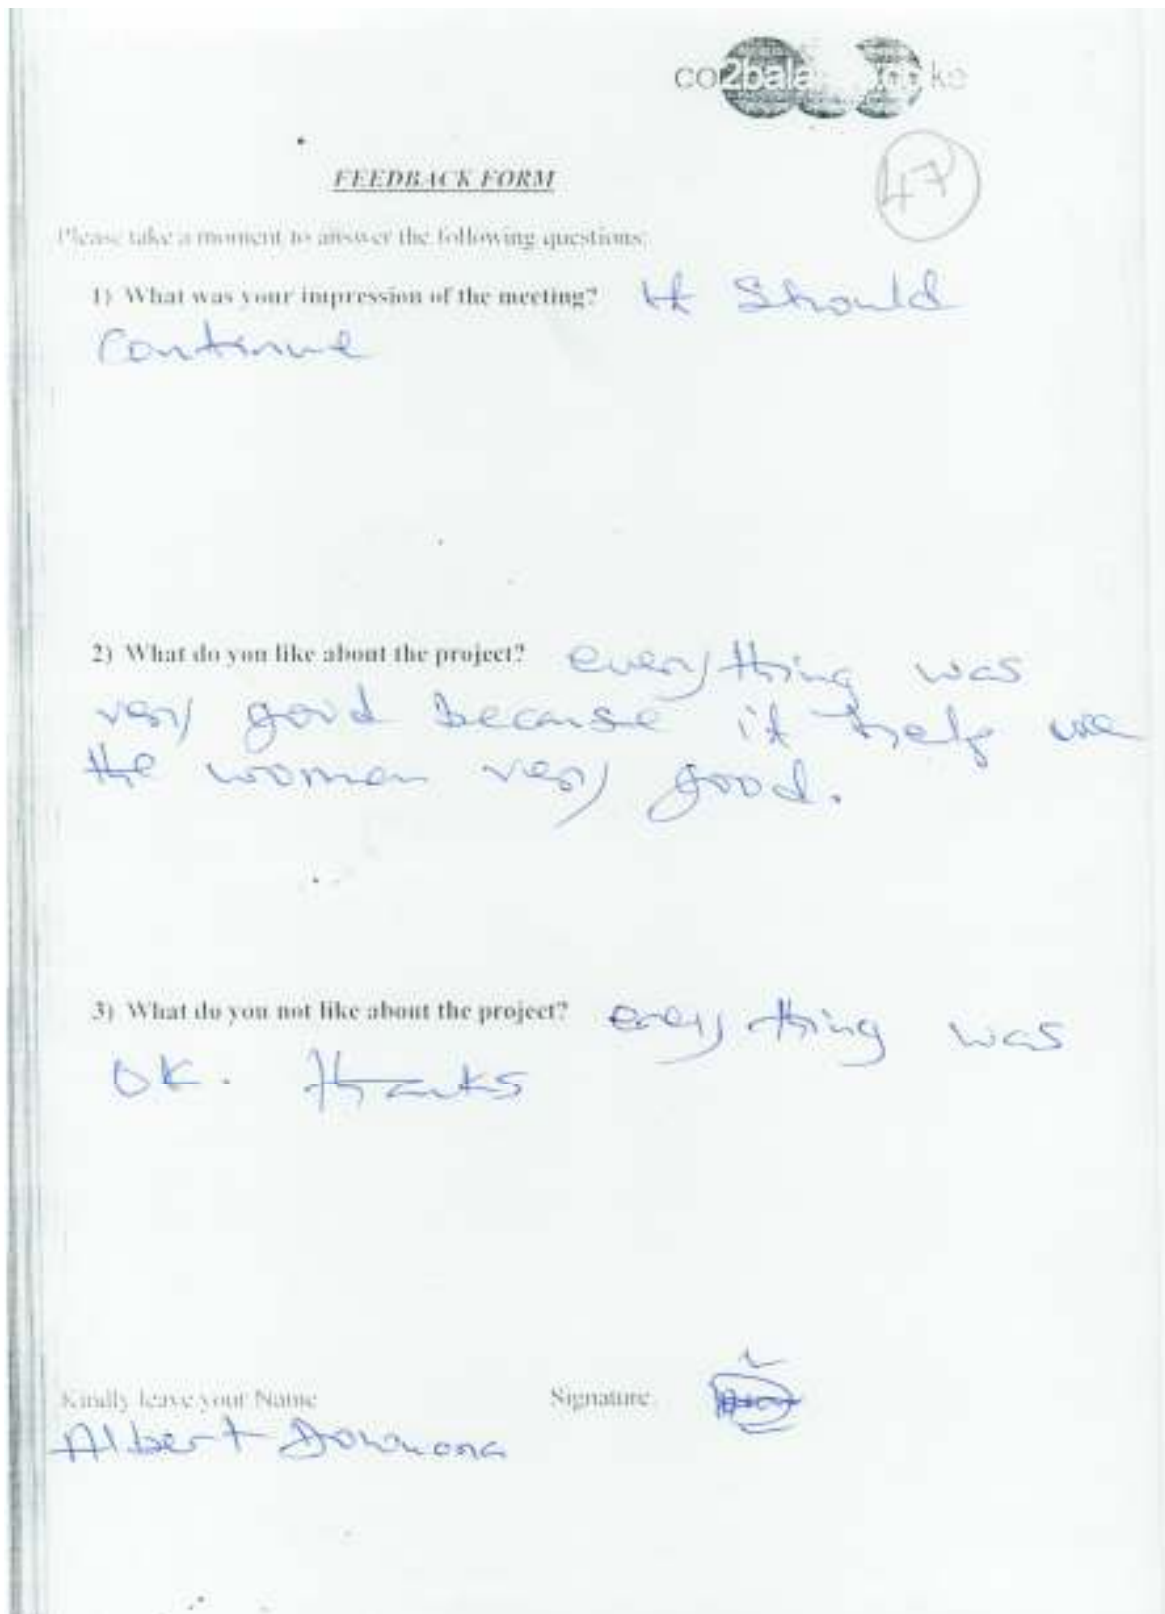 47
FEEDBACK FORM
Please take a moment to answer the following questions:
1) What was your impression of the meeting? It Should
Continue
2) What do you like about the project? everything was
very good because it help we
the women very good.
3) What do you not like about the project? every thing was
OK. Thanks
Kindly leave your Name Signature
Albert